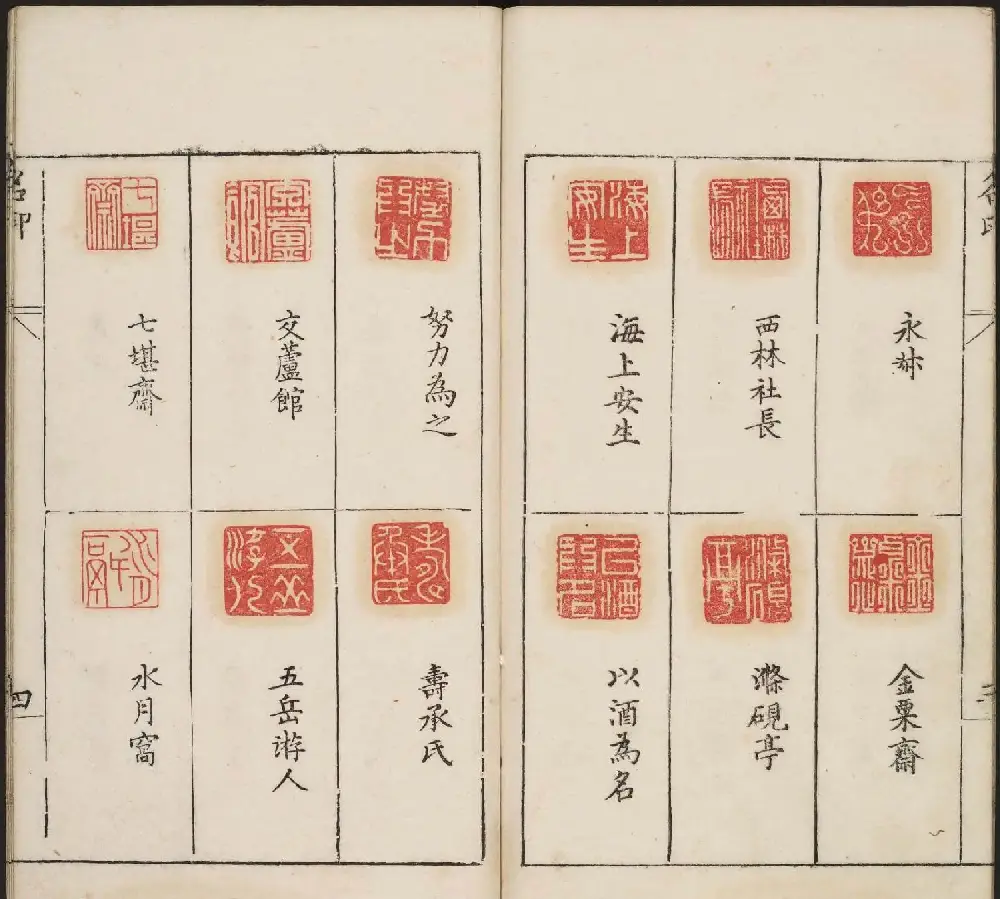 永
金粟齋
西林社長
滌硯亭
海上安生
以酒為名
努力為之
壽承氏
交蘆館
五岳游人
七堪齋
水月窩
四